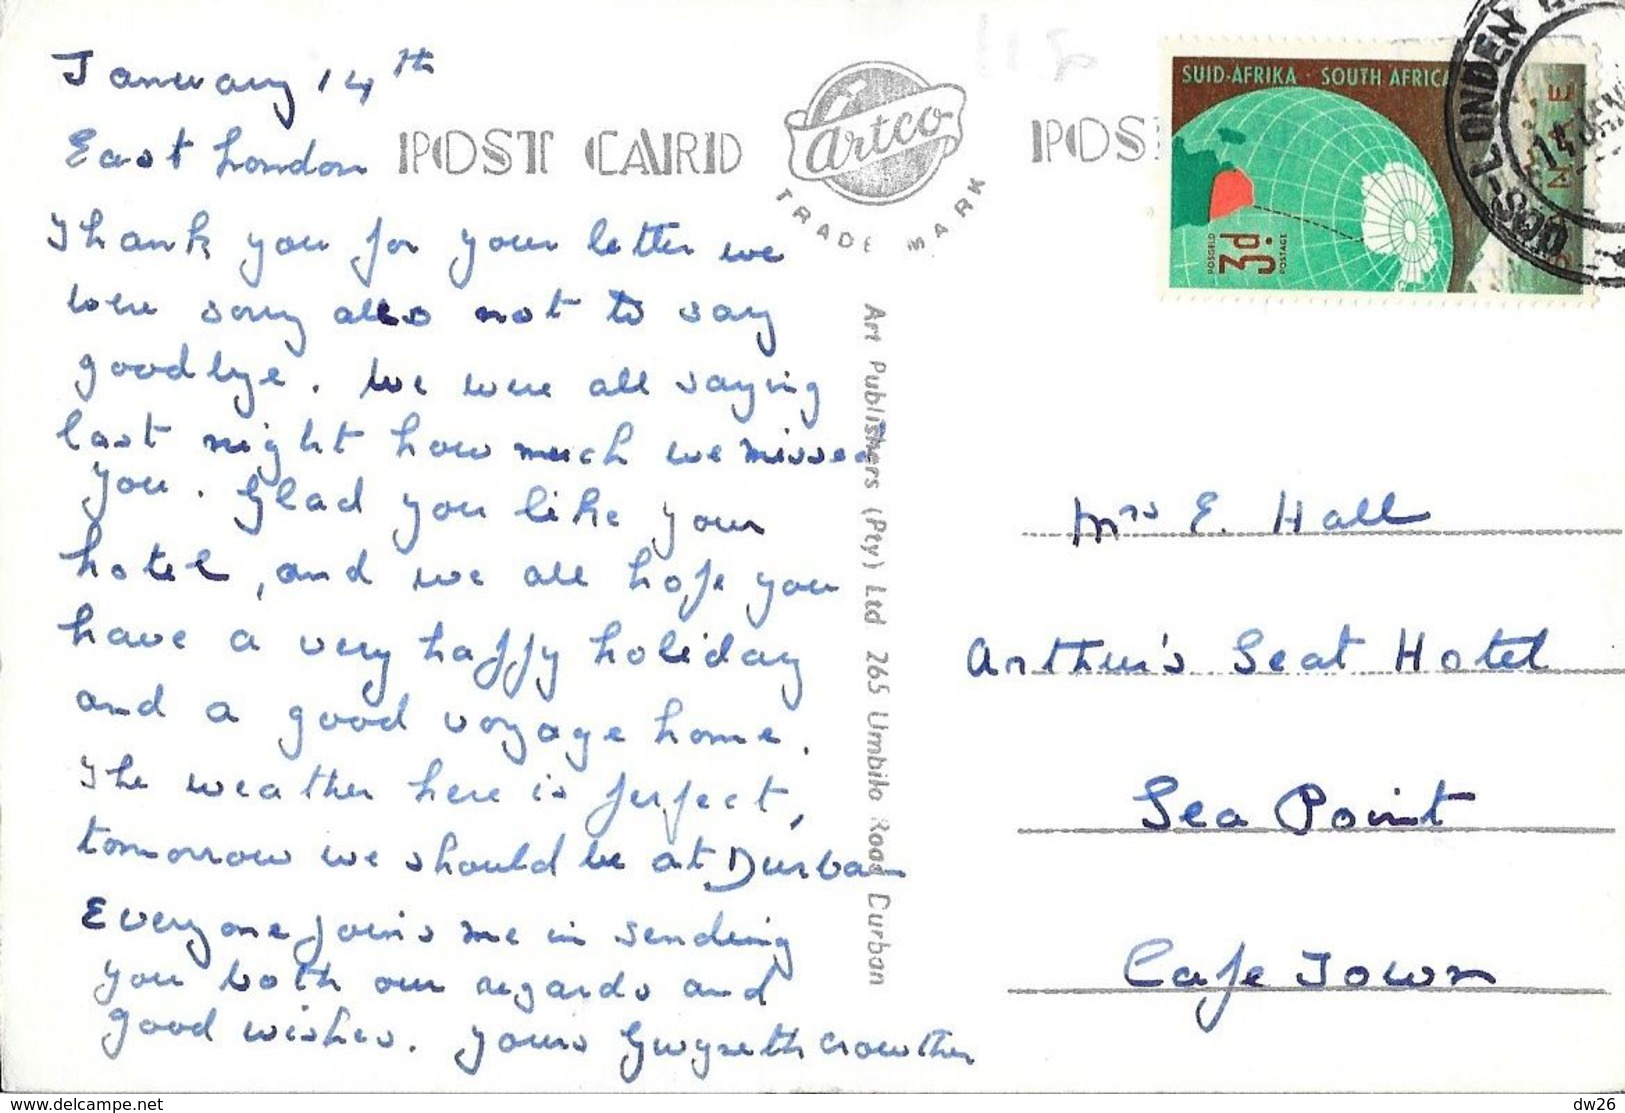 January 14th
East London
POST CARD
Artco
TRADE MARK
POS
SUID-AFRIKA · SOUTH AFRICA
POSGELD
3d.
POSTAGE
OOS-LONDEN
14 JAN
Thank you for your letter we
were sorry also not to say
goodbye. We were all saying
last night how much we missed
you. Glad you like your
hotel, and we all hope you
have a very happy holiday
and a good voyage home.
The weather here is perfect,
tomorrow we should be at Durban
Everyone joins me in sending
you both our regards and
good wishes. Yours Gwyneth Crowther
Art Publishers (Pty) Ltd 265 Umbilo Road Durban
Mrs E. Hall
Arthur's Seat Hotel
Sea Point
Cape Town
https://www.delcampe.net
dw26